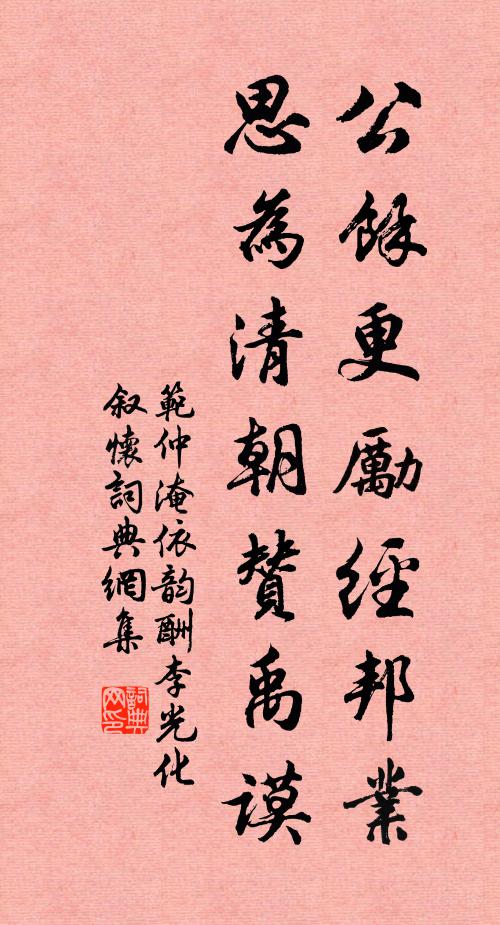 公餘更勵經邦業
思為清朝贊禹謨
範仲淹依韵酬李光化
叙懷詞典網集
詞典
网印